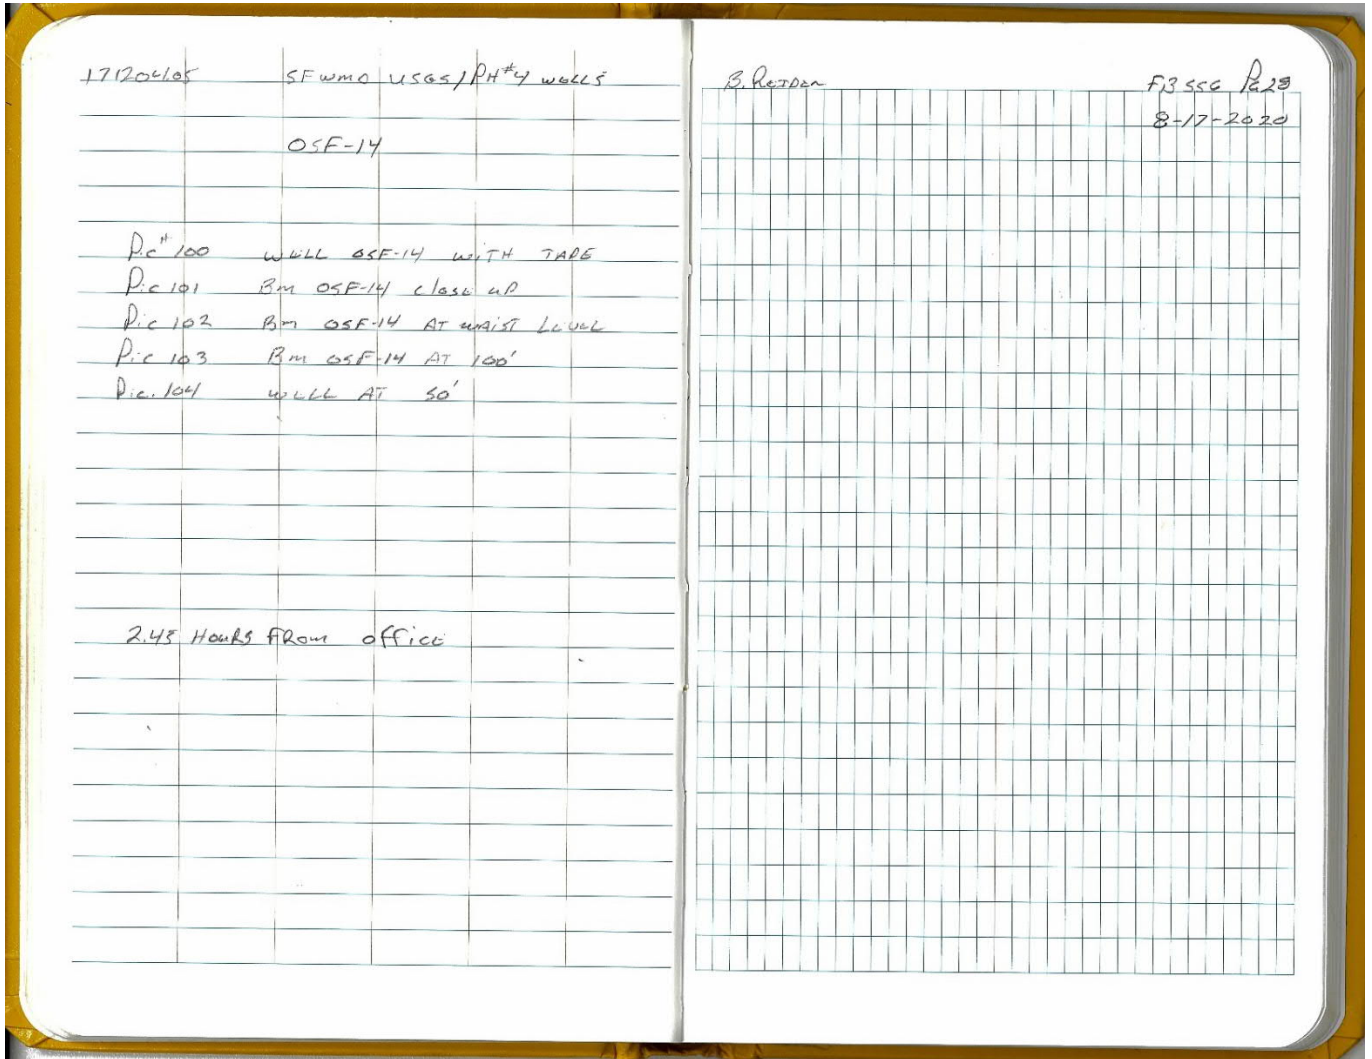 171204.05 SFWMD USGS/PH#4 WELLS
OSF-14
Pic# 100 WELL OSF-14 WITH TAPE
Pic 101 BM OSF-14 close up
Pic 102 BM OSF-14 AT WAIST LEVEL
Pic 103 BM OSF-14 AT 100'
Pic. 104 WELL AT 50'
2.45 HOURS FROM office
B.
FB 556 PG 28
8-17-2020